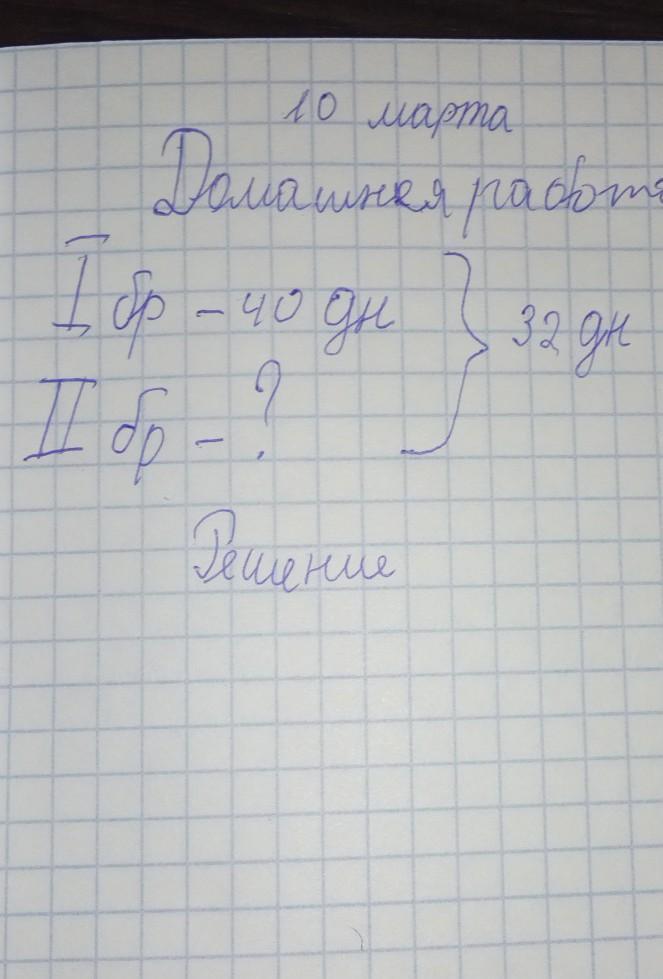 10 марта
Домашняя работа
I бр - 40 дн
32 дн
II бр - ?
Решение